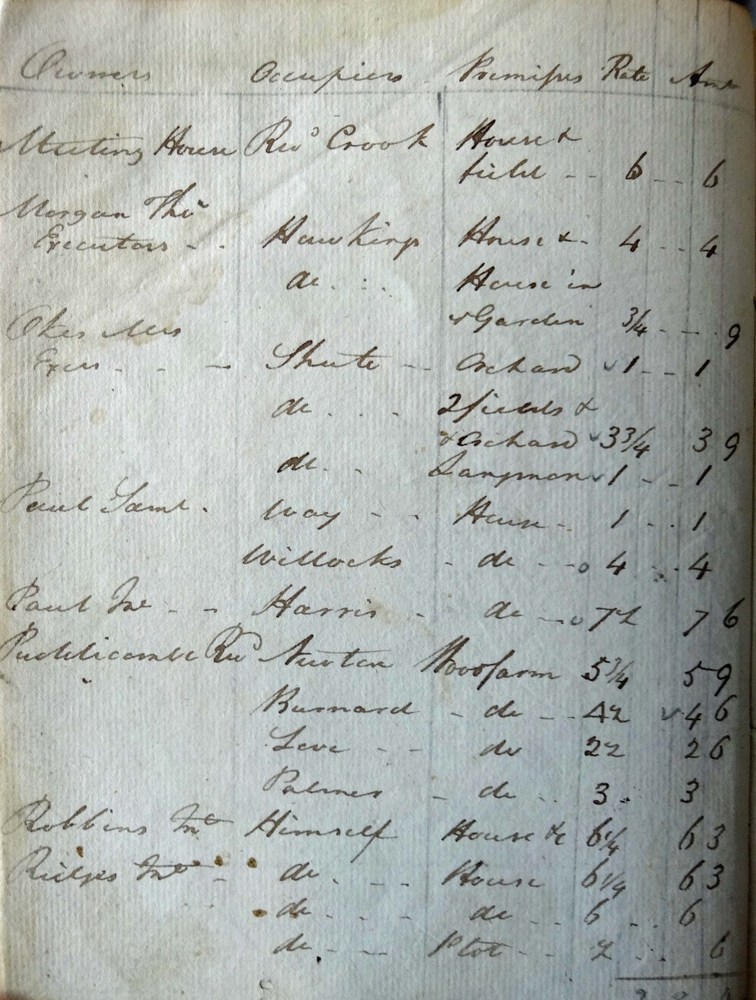 Owners Occupiers Premises Rate Amt
Meeting House Revd Crook House &
field -- 6 -- 6
Morgan Thos
Executors -- Hawkings House & - 4 -- 4
do House in
& Garden 3/4 --- 9
Okes Mrs
Exers - - - Shute -- Orchard 1 -- 1
do 2 fields &
& Orchard 3 3/4 3 9
do Langmon 1 -- 1
Paul Saml - Way -- House - 1 -- 1
Willocks - do -- 4 -- 4
Paul Jno -- Harris - do -- 7 1/2 7 6
Puddicombe Revd Newton Moorfarm 5 3/4 5 9
Burnard - do -- 4 1/2 4 6
Leve -- do 2 1/2 2 6
Palmer - do -- 3 - 3
Robbins Jno Himself House &c 6 1/4 6 3
Jno - do --- House 6 1/4 6 3
do --- do -- 6 -- 6
do --- Plot -- 1/2 -- 6